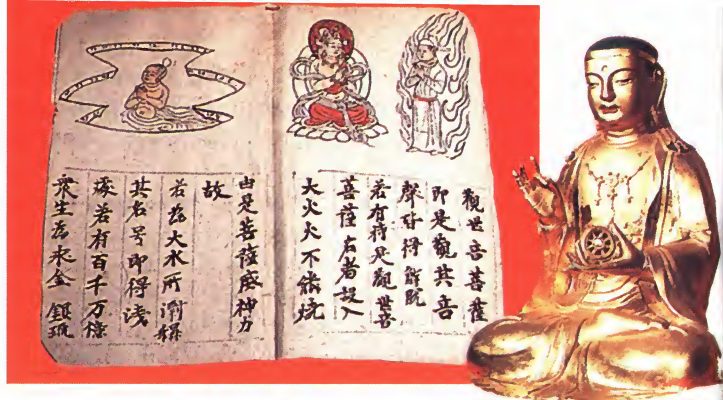 觀世音菩薩
即是觀其音
聲皆得解脫
若有持是觀世音
菩薩名者設入
大火火不能燒
由是菩薩威神力
故
若為大水所漂稱
其名号即得淺
處若有百千万億
眾生為求金銀琉